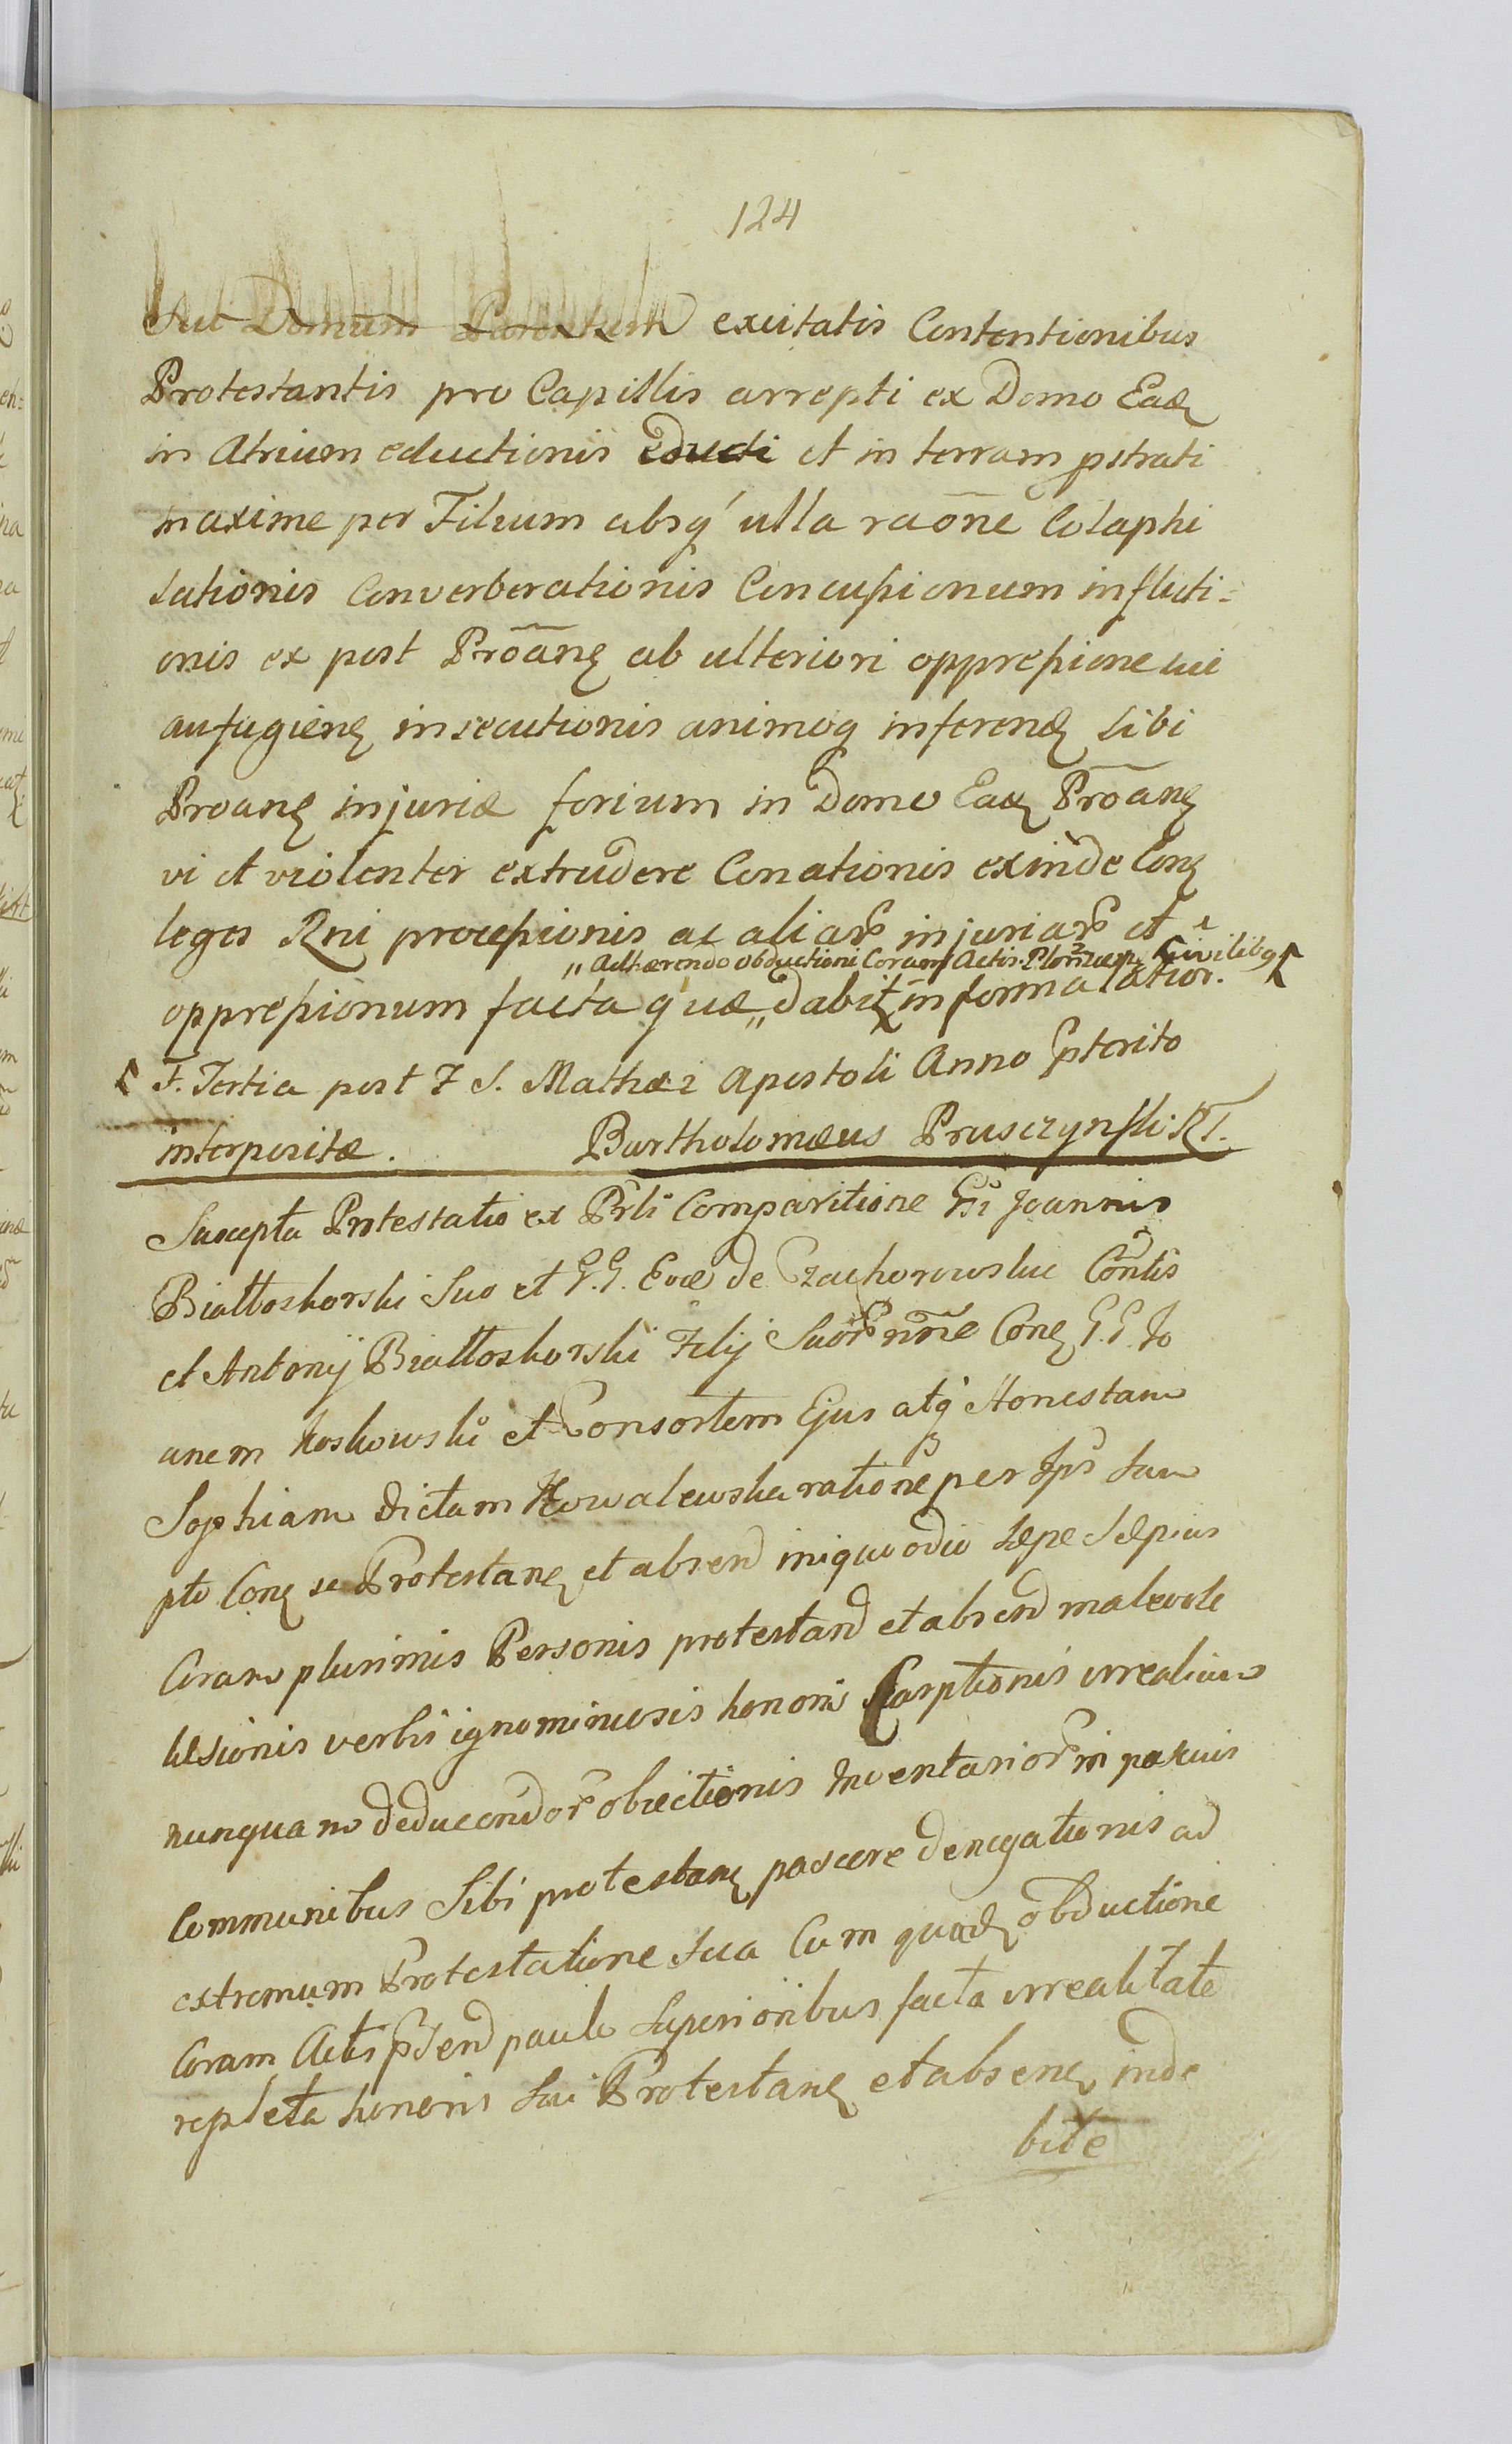 124
excitatis Contentionibus
Protestantis pro Capillis arrepti ex Domo Ead
in Atrium eductionis educti et in terram pstrati
maxime per Filium absq ulla raõne Colaphi
sationis Converberationis Concussionum inflicti-
onis ex post Proãnę ab ulteriori oppressione sui
aufugienę insecutionis animoq inferenđ sibi
Proanę injuriæ forium in Domo Eađ Prõanę
vi et violenter extrudere Conationis exinde Conę
leges Rni processionis ac aliarꝝ injuriarꝝ et
„ Adhærendo obductioni Coram Actis Civilibq
oppressionum facta quæ „ dabiƭ in forma latior.
F. Tertia post F S. Mathæi Apostoli Anno pterito
interpositæ. Bartholomæus Prusczynski RT.
Suscepta Protestatio ex Prli Comparitione Gsi Joannis
Białłoskorski Suo et G.G. Evæ de Czachorowskie Contis
et Antonij Białłoskorski Filij Suorꝝ nñe Conę G.G. Jo
anem Koskowski et Consortem Ejus atq Honestam
Sophiam dictam Kowalewska ratione per Ips Sum
pto Conę se Protestanę et absenđ iniquo odio sæpe sæpius
Coram plurimis Personis protestanđ et absenđ malevole
læsionis verbis ignominiosis honoris Carptionis irrealium
nunquam deducendorꝝ obiectionis Inventariorꝝ in pascuis
Communibus Sibi protestanę pascere denegationis ad
extremum Protestatione sua Cum quađ obductione
Coram Actis pñsenđ paulo Superioribus facta irrealitate
repleta honoris sui Protestanę et absenę inde
bite